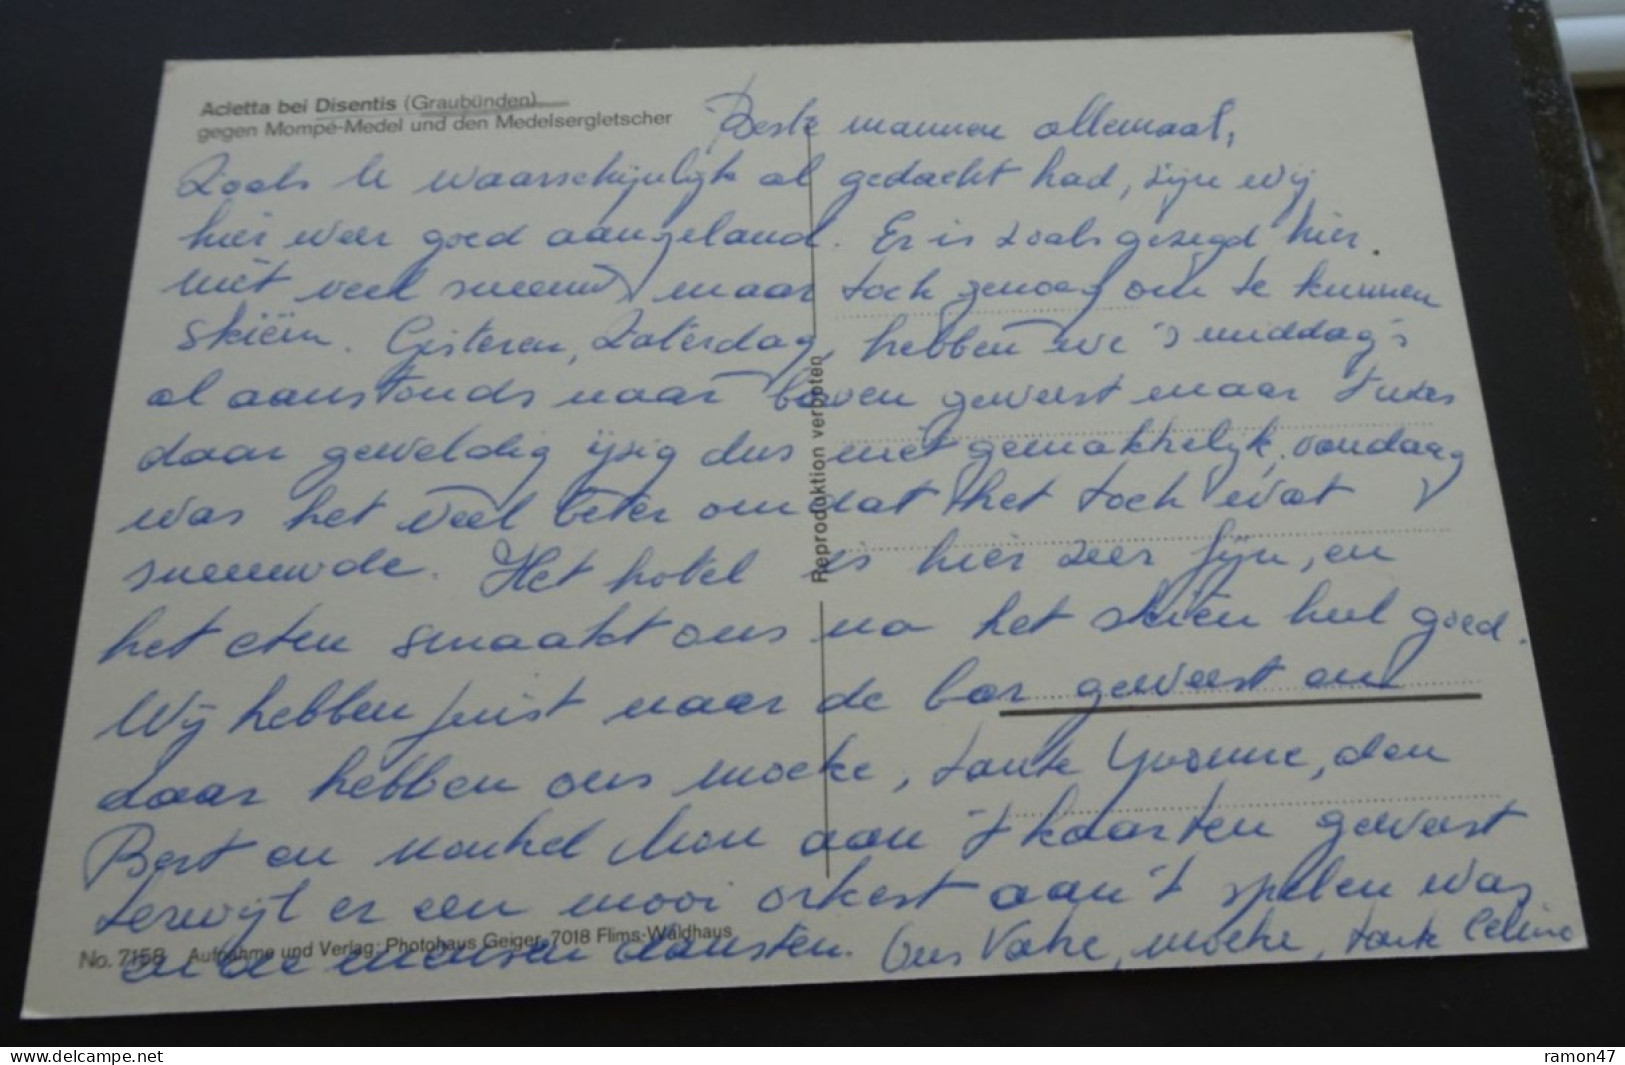 Acletta bei Disentis (Graubünden)
gegen Mompé-Medel und den Medelsergletscher
Beste mannen allemaal,
Zoals U waarschijnlijk al gedacht had, zijn wij
hier weer goed aangeland. Er is zoals gezegd hier
niet veel sneeuw maar toch genoeg om te kunnen
skiën. Gisteren, Zaterdag, hebben we 's middag's
al aanstonds naar boven geweest maar 't was
daar geweldig ijzig dus niet gemakkelijk, vandaag
was het veel beter omdat het toch wat
sneeuwde. Het hotel is hier zeer fijn, en
het eten smaakt ons na het skiën heel goed.
Wij hebben juist naar de bar geweest en
daar hebben ons moeke, tante Yvonne, den
Bert en nonkel Mon aan 't kaarten geweest
terwijl er een mooi orkest aan 't spelen was
en de mensen dansten. Ons Vake, moeke, tante Celine
Reproduktion verboten
No. 7158 Aufnahme und Verlag: Photohaus Geiger, 7018 Flims-Waldhaus
www.delcampe.net
ramon47